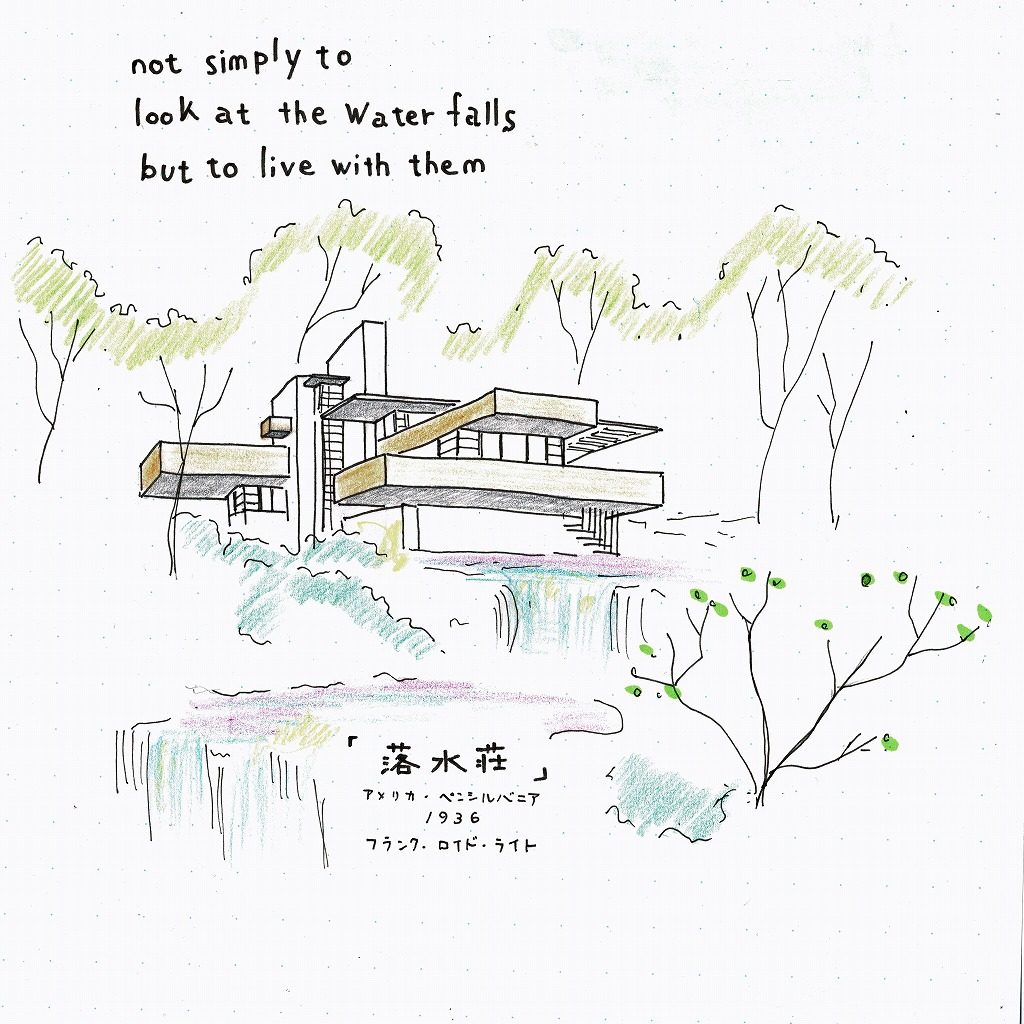 not simply to
look at the Waterfalls
but to live with them
「落水荘」
アメリカ・ペンシルバニア
1936
フランク・ロイド・ライト